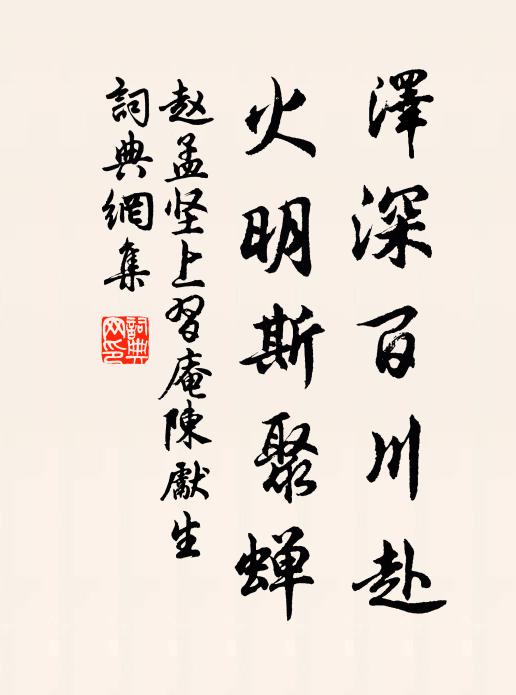 澤深百川赴
火明斯聚蝉
赵孟坚上習庵陳獻生
詞典網集
詞典
网印